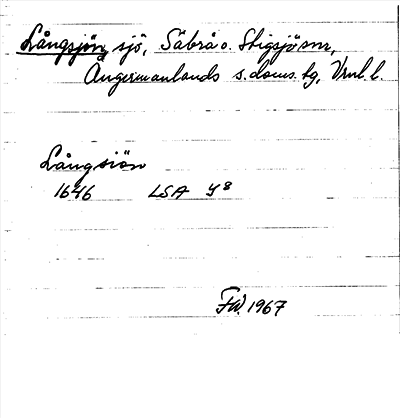 Långsjön, sjö, Säbrå o. Stigsjö snr,
Ångermanlands s. doms. tg, Vrnl. l.
Långsiön
1646 LSA Y8
FW. 1967